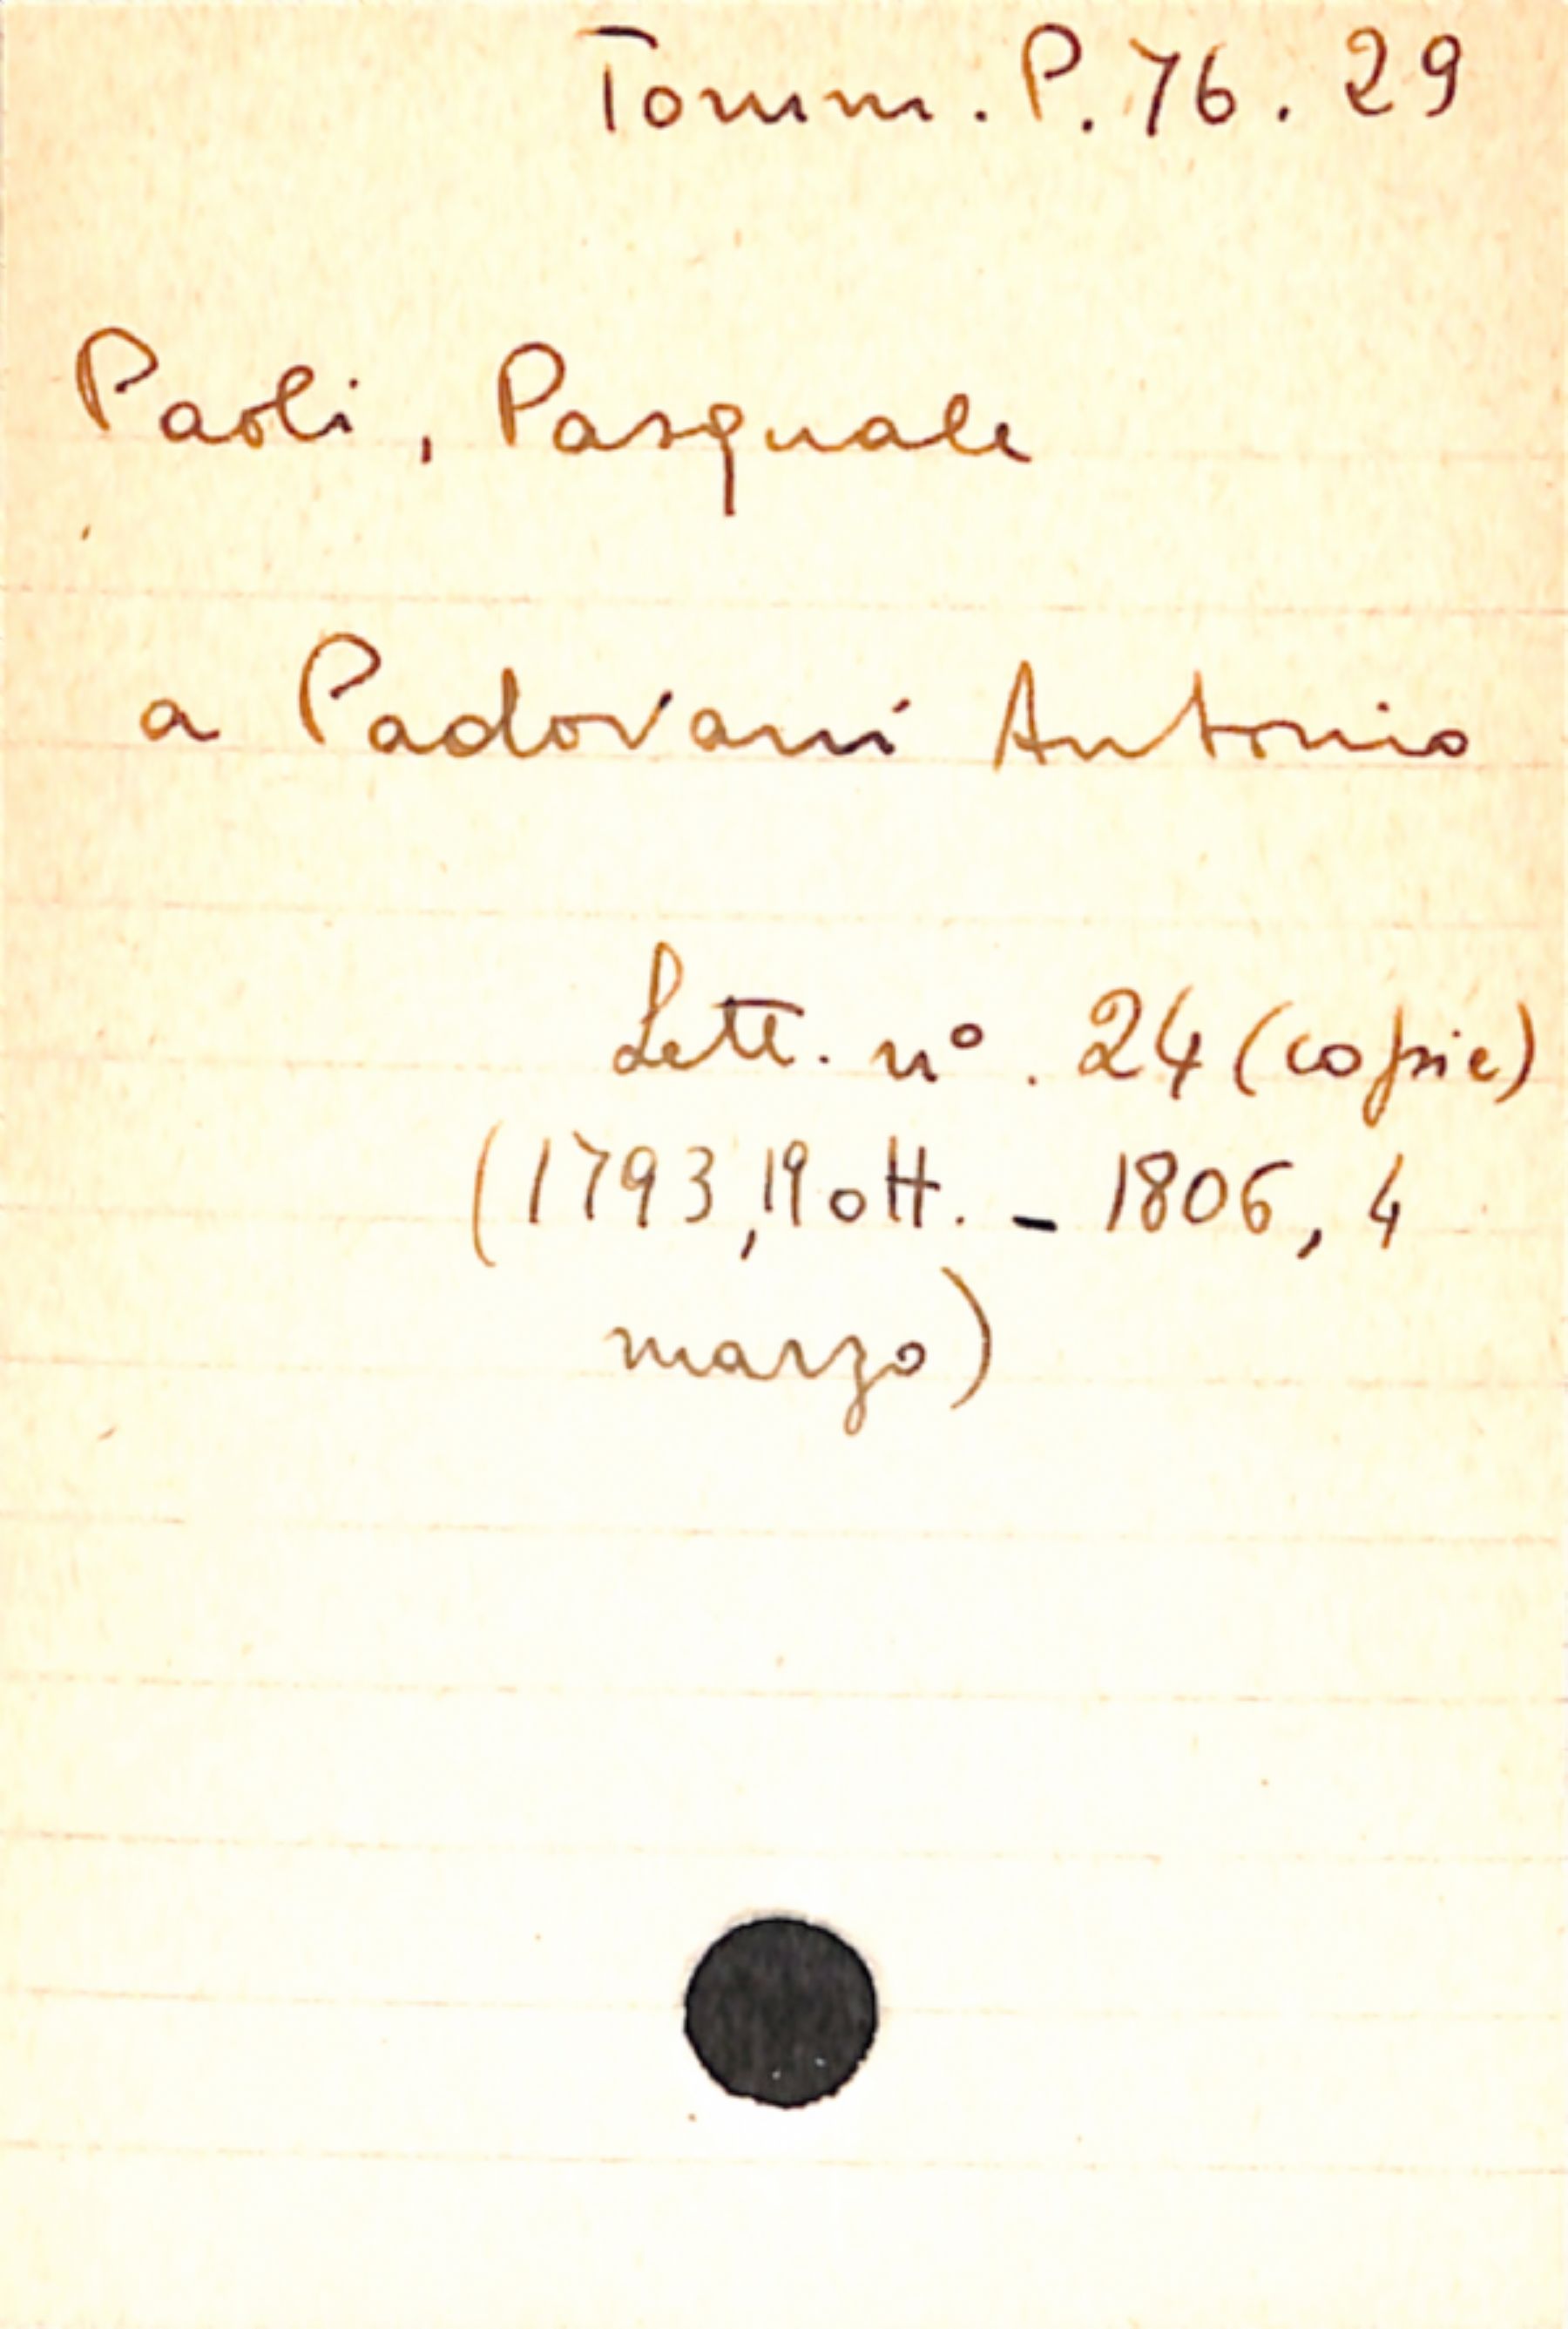 Tomm. P. 76. 29
Paoli, Pasquale
a Padovani Antonio
Lett. nº. 24 (copie)
(1793, 19 ott. - 1806, 4
marzo)